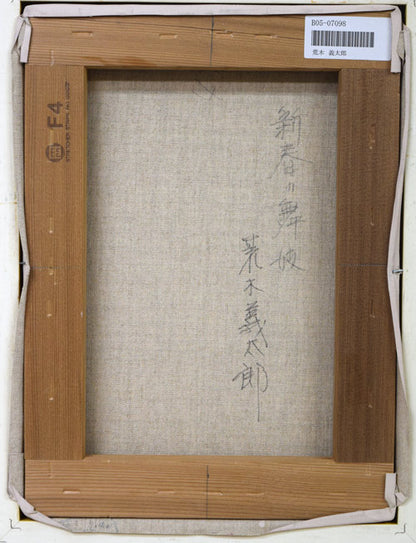 B05-07098
荒木 義太郎
F4
新春の舞妓
荒木義太郎